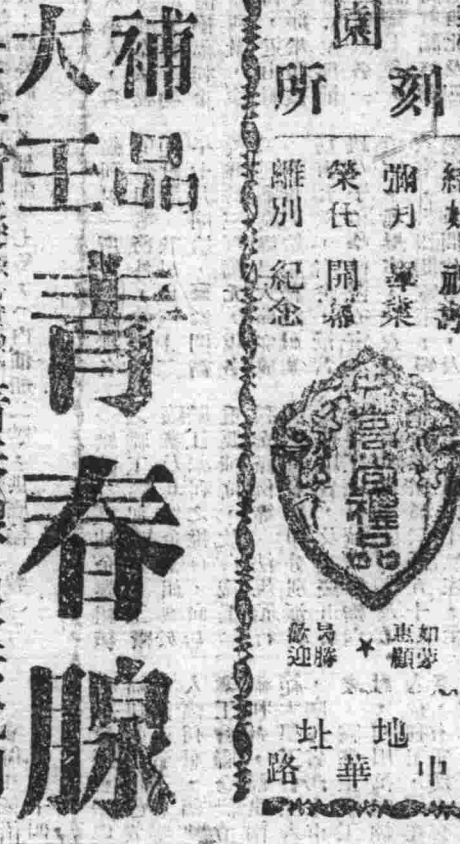 園
刻所
結婚 祝壽
彌月 畢業
榮任 開幕
離別 紀念
禮品
如蒙惠顧★曷勝歡迎
地址
中華路
補品
大王
青春腺